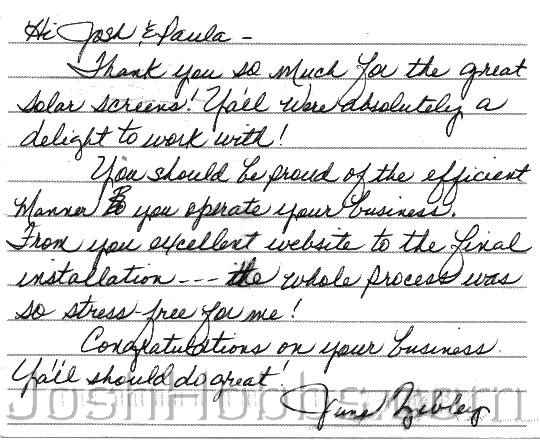 Hi Josh & Paula –
Thank you so much for the great
solar screens! Ya'll were absolutely a
delight to work with!
You should be proud of the efficient
manner you operate your business.
From you excellent website to the final
installation --- the whole process was
so stress-free for me!
Congratulations on your business.
Ya'll should do great!
JoshHobbs.com
June